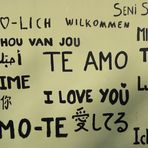 ♡-LICH WILLKOMMEN
SENI S
HOU VAN JOU
TE AMO
IME
你
I LOVE YOU
MO-TE 愛してる
Ich